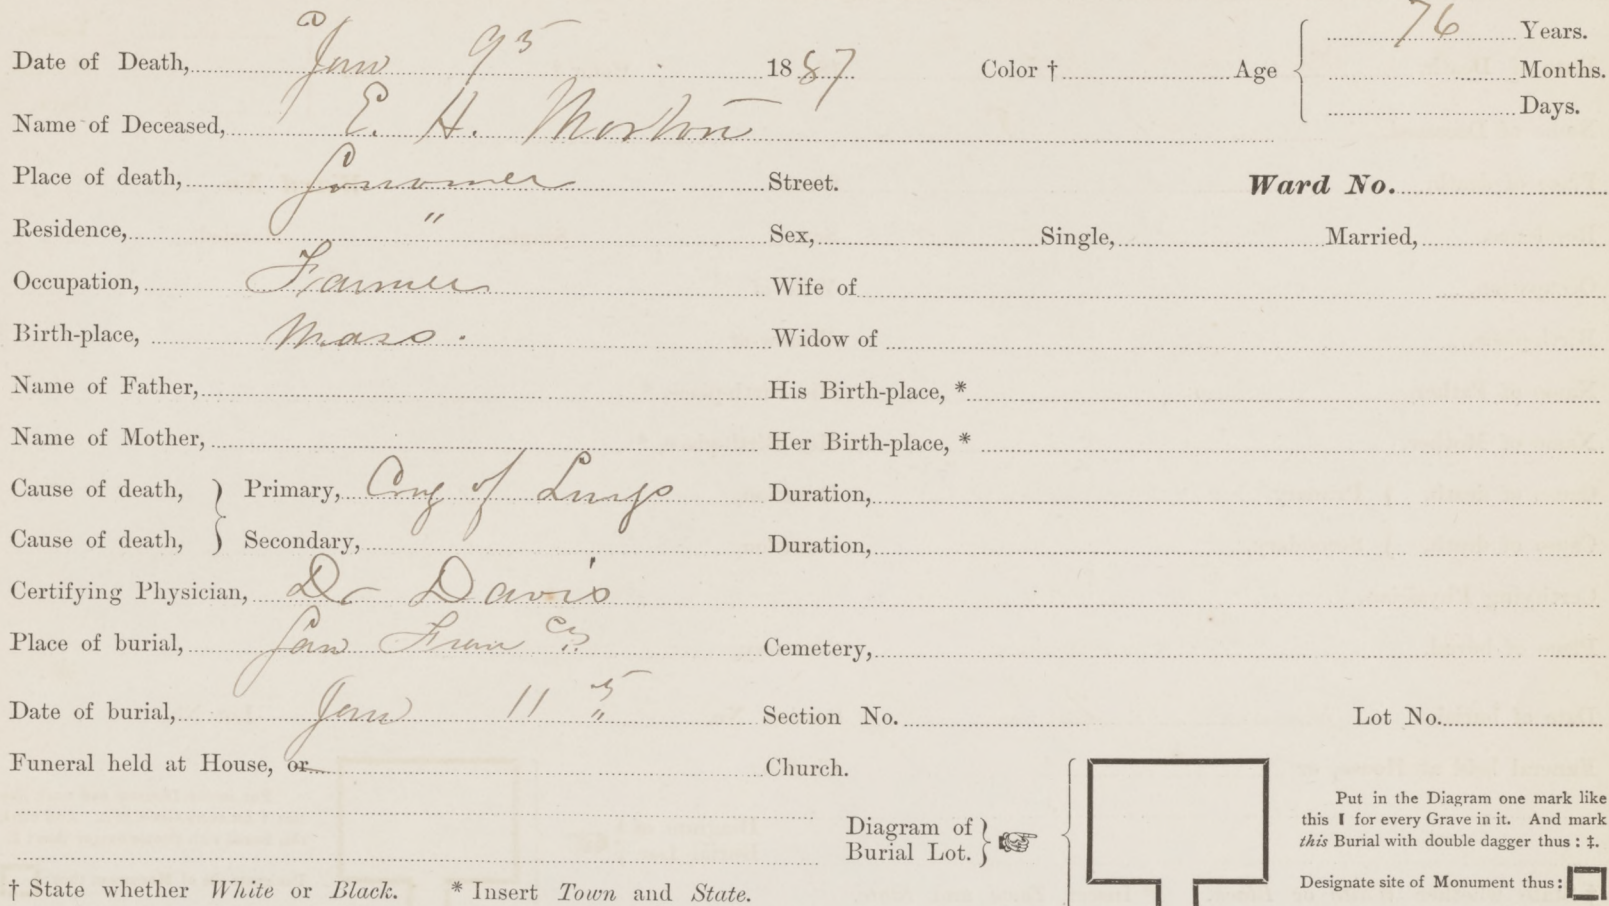 76 Years.
Date of Death, Jan 9 1887 Color † Age Months.
Days.
Name of Deceased, E. H. Morton
Place of death, Sonomer Street. Ward No.
Residence, " Sex, Single, Married,
Occupation, Farmer Wife of
Birth-place, Mass. Widow of
Name of Father, His Birth-place, *
Name of Mother, Her Birth-place, *
Cause of death, } Primary, Cong of Lungs Duration,
Cause of death, } Secondary, Duration,
Certifying Physician, Dr Davis
Place of burial, San Cemetery,
Date of burial, Jan 11 Section No. Lot No.
Funeral held at House, or Church.
Put in the Diagram one mark like
this I for every Grave in it. And mark
this Burial with double dagger thus : ‡.
Diagram of
Burial Lot. }
Designate site of Monument thus:
† State whether White or Black. * Insert Town and State.